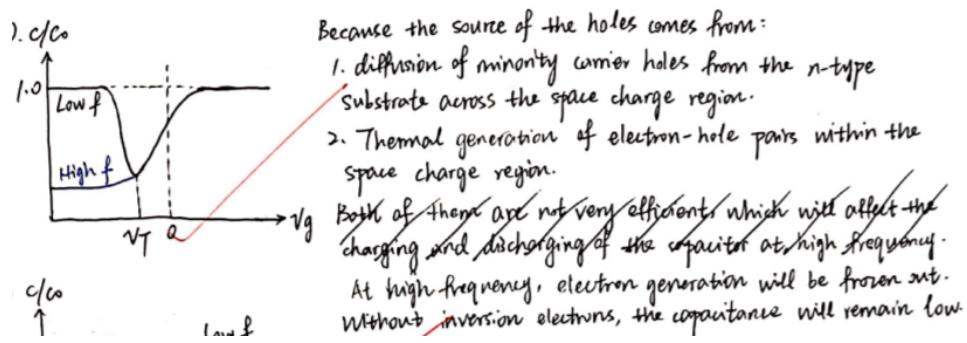 ). C/Co
1.0
Low f
High f
VT 0 Vg
Because the source of the holes comes from:
1. diffusion of minority carrier holes from the n-type
substrate across the space charge region.
2. Thermal generation of electron-hole pairs within the
space charge region.
Both of them are not very efficient, which will affect the
charging and discharging of the capacitor at high frequency.
At high frequency, electron generation will be frozen out.
Without inversion electrons, the capacitance will remain low.
C/Co
Low f